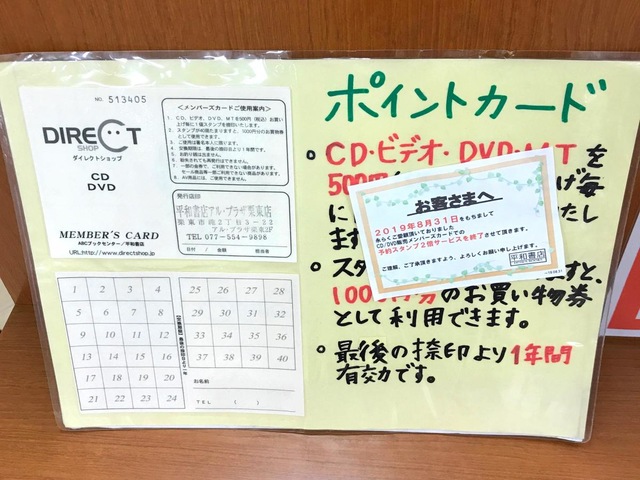 NO. 513405
DIRECT
SHOP
ダイレクトショップ
CD
DVD
MEMBER'S CARD
ABCブックセンター/平和書店
URL:http://www.directshop.jp
<メンバーズカードご使用案内>
1. CD、ビデオ、DVD、MTを500円(税込)お買い
上げ毎に1個スタンプを捺印いたします。
2. スタンプが40個たまりますと、1000円分のお買物券
として使用できます。
3. ご使用は署名本人に限ります。
4. 有効期限は、最後の捺印日より1年間です。
5. お釣り銭は出ません。
6. 紛失されても再発行はできません。
発行店印
平和書店アル・プラザ栗東店
栗東市綣2丁目3-22
アル・プラザ栗東2F
TEL 077-554-9898
1 2 3 4
5 6 7 8
9 10 11 12
13 14 15 16
17 18 19 20
21 22 23 24
25 26 27 28
29 30 31 32
33 34 35 36
37 38 39 40
お名前
TEL ( )
ポイントカード
• CD・ビデオ・DVD・MTを
500円 げ毎
に たし
ます
お客さまへ
2019年8月31日をもちまして
永らくご愛顧頂いておりました
CD/DVD販売メンバーズカードでの
予約スタンプ2倍サービスを終了させて頂きます。
ご理解、ご了承頂きますよう、よろしくお願い申し上げます。
平和書店
• スタ ますと、
100 分のお買い物券
として利用できます。
• 最後の捺印より1年間
有効です。